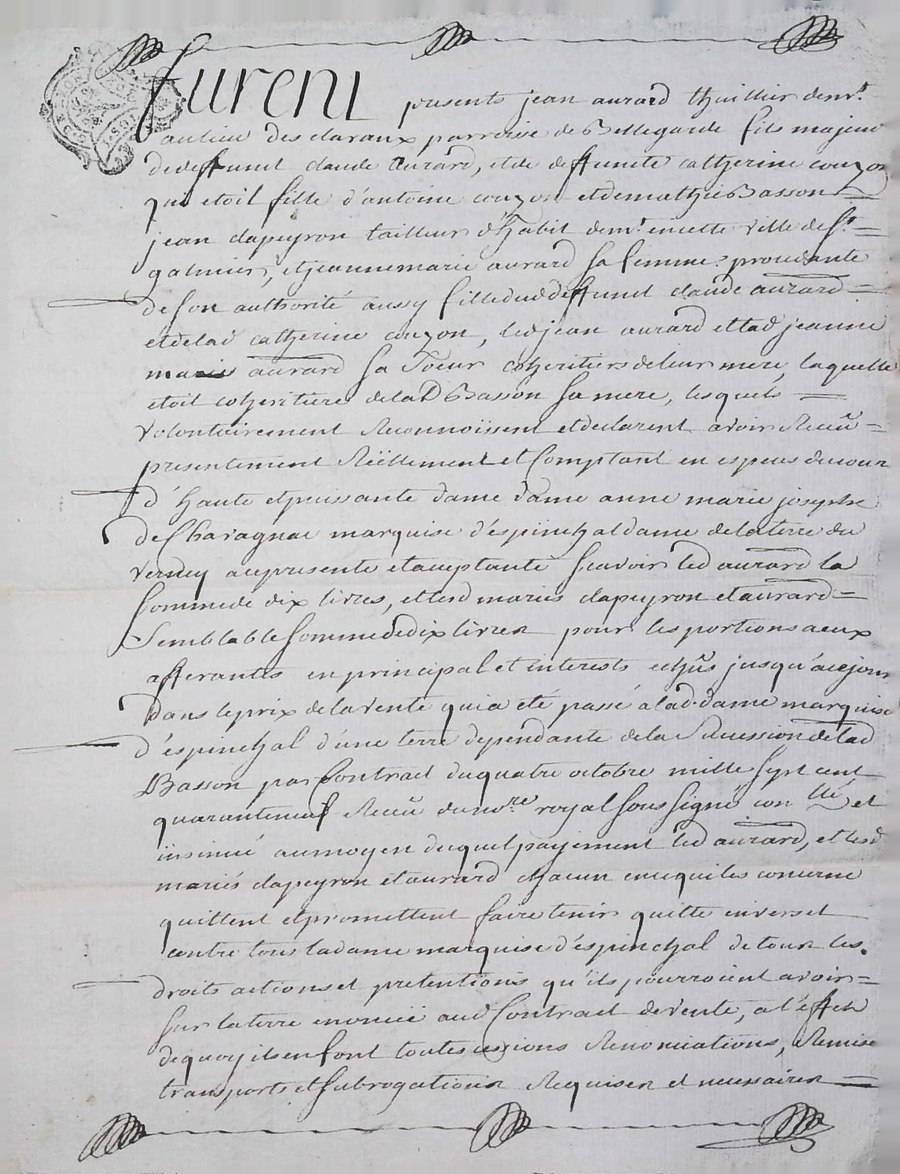 furent presents jean aurard thuillier dem.t
au lieu des claraux parroisse de Bellegarde fils majeur
de deffunct claude aurard, et de deffuncte catherine couzon
qui etoit fille d'antoine couzon et de mathie Basson
jean clapeyron tailleur d'habit dem.t en cette ville de S.t
galmier, et jeanne marie aurard sa femme procedante
de son authorité aussy fille dud deffunct claude aurard
et de lad catherine couzon, led jean aurard et lad jeanne
marie aurard sa soeur coheritiers de leur mere, laquelle
etoit coheritiere de lad Basson sa mere, lesquels
volontairement Reconnoissent et declarent avoir Receu
presentement Réellement et Comptant en especes du cour
d'haute et puissante dame dame anne marie josephe
de Chavagnac marquise d'espinchal dame de la terre du
verney acy presente et aceptante scavoir led aurard la
somme de dix livres, et lesd mariés clapeyron et aurard
semblable somme de dix livres pour les portions a eux
afferantes en principal et interests echus jusqu'a ce jour
dans le prix de la vente qui a eté passé a lad. dame marquise
d'espinchal d'une terre dependante de la Succession de lad
Basson par Contrait du quatre octobre mille sept cent
quaranteneuf Receu du no.re royal sous signé con.llé et
insinué au moyen duquel payement led aurard, et lesd
mariés clapeyron et aurard chacun en ce qui les concerne
quittent et promettent faire tenir quitte envers et
contre tous ladame marquise d'espinchal de tous les
droits actions et pretentions qu'ils pourroient avoir
sur la terre enoncée aud Contrait de vente, a l'effet
de quoy ils en font toutes cessions Renonciations, Remise
transports et subrogations Requises et necessaires